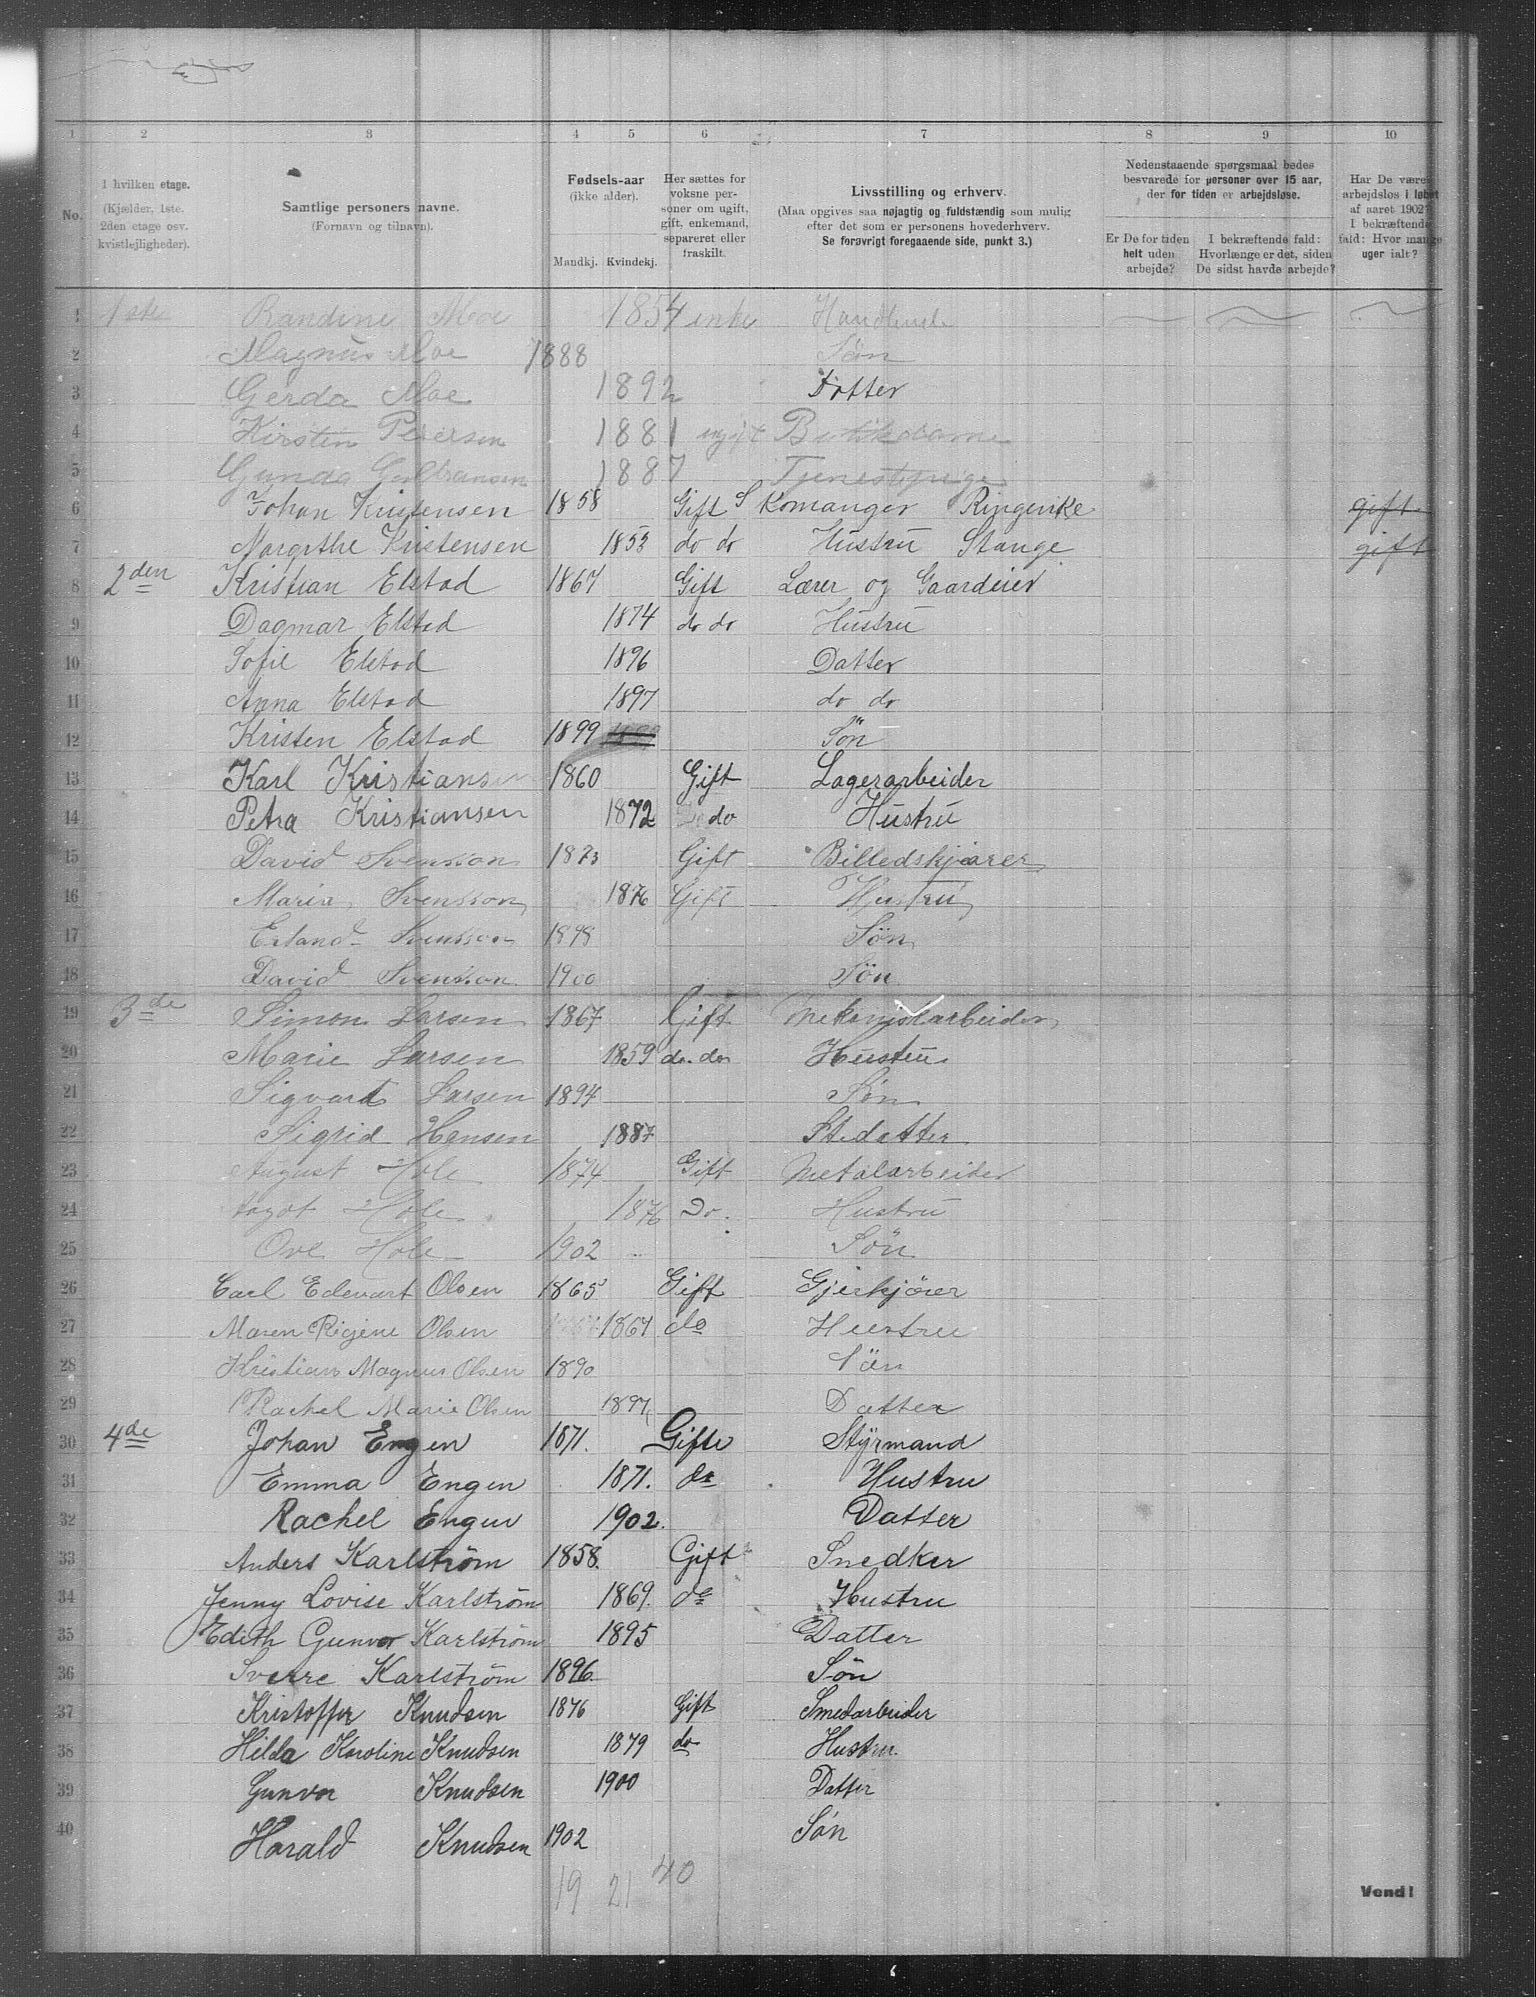 1 2 3 4 5 6 7 8 9 10
No.
I hvilken etage.
(Kjælder, 1ste.
2den etage osv.
kvistlejligheder).
Samtlige personers navne.
(Fornavn og tilnavn).
Fødsels-aar
(ikke alder).
Mandkj. Kvindekj.
Her sættes for
voksne per-
soner om ugift,
gift, enkemand,
separeret eller
fraskilt.
Livsstilling og erhverv.
(Maa opgives saa nøjagtig og fuldstændig som mulig
efter det som er personens hovederhverv.
Se forøvrigt foregaaende side, punkt 3.)
Nedenstaaende spørgsmaal bedes
besvarede for personer over 15 aar,
der for tiden er arbejdsløse.
Er De for tiden
helt uden
arbejde?
I bekræftende fald:
Hvorlænge er det, siden
De sidst havde arbejde?
Har De være
arbejdsløs i løbet
af aaret 1902?
I bekræftende
fald: Hvor mange
uger ialt?
1 1ste Randine Moe 1854 enke Handlende
2 Magnus Moe 1888 Søn
3 Gerda Moe 1892 Datter
4 Kirsten Petersen 1881 ugift Butikdame
5 Gunda Guldbransen 1887 Tjenestepige
6 Johan Kristensen 1858 Gift Skomanger Ringerike gift
7 Margrthe Kristensen 1853 do do Hustru Stange gift
8 2den Kristian Elstad 1867 Gift Lærer og Gaardeier
9 Dagmar Elstad 1874 do do Hustru
10 Sofie Elstad 1896 Datter
11 Anna Elstad 1897 do do
12 Kristen Elstad 1899 Søn
13 Karl Kristiansen 1860 Gift Lagerarbeider
14 Petra Kristiansen 1872 do Hustru
15 David Svensson 1873 Gift Billedskjærer
16 Maria Svensson 1876 Gift Hustru
17 Erland Svensson 1898 Søn
18 David Svensson 1900 Søn
19 3de Simon Larsen 1867 Gift Mekaniskarbeider
20 Marie Larsen 1859 do. do Hustru
21 Sigvard Larsen 1894 Søn
22 Sigrid Hansen 1887 Stedatter
23 August Hole 1874 Gift Metalarbeider
24 Hole 1876 Do. Hustru
25 Ove Hole 1902 Søn
26 Carl Edevart Olsen 1865 Gift Gjerkjører
27 Maren Rigine Olsen 1867 do Hustru
28 Kristian Magnus Olsen 1890 Søn
29 Rachel Marie Olsen 1897 Datter
30 4de Johan Engen 1871. Gifte Styrmand
31 Emma Engen 1871. do Hustru
32 Rachel Engen 1902. Datter
33 Anders Karlström 1858. Gift Snedker
34 Jenny Lovise Karlström 1869. do Hustru
35 Edith Gunvor Karlström 1895 Datter
36 Sverre Karlström 1896 Søn
37 Kristoffer Knudsen 1876 Gift Smedarbeider
38 Hilda Karoline Knudsen 1879 do Hustru
39 Gunvor Knudsen 1900 Datter
40 Harald Knudsen 1902 Søn
19 21 40
Vend!